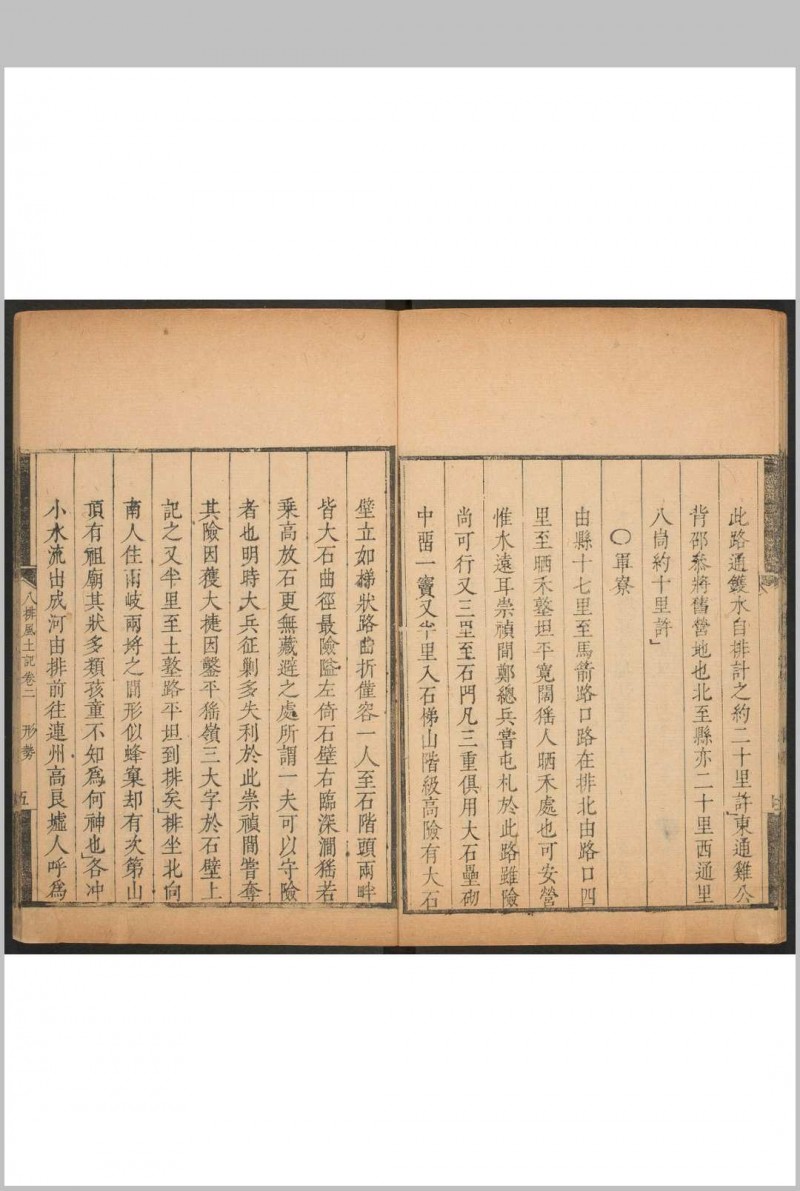 此路通鑊水自排計之約二十里許」東通雞公
背邵叅將舊營地也北至縣亦二十里西通里
八崗約十里許」
〇軍寮
由縣十七里至馬箭路口路在排北由路口四
里至晒禾墪坦平寬闊猺人晒禾處也可安營
惟水遠耳崇禎間鄭總兵嘗屯札於此路雖險
尚可行又三里至石門凡三重俱用大石壘砌
中畱一竇又半里入石梯山階級高險有大石
壁立如梯狀路曲折僅容一人至石階頭兩畔
皆大石曲徑最險隘左倚石壁右臨深澗猺若
乘高放石更無藏避之處所謂一夫可以守險
者也明時大兵征剿多失利於此崇禎間嘗奪
其險因獲大捷因鑿平猺嶺三大字於石壁上
記之又半里至土墪路平坦到排矣」排坐北向
南人住兩岐兩埒之間形似蜂窠却有次第山
頂有祖廟其狀多類孩童不知為何神也」各冲
小水流出成河由排前往連州高良墟人呼為
八排風土記卷二 形勢 五